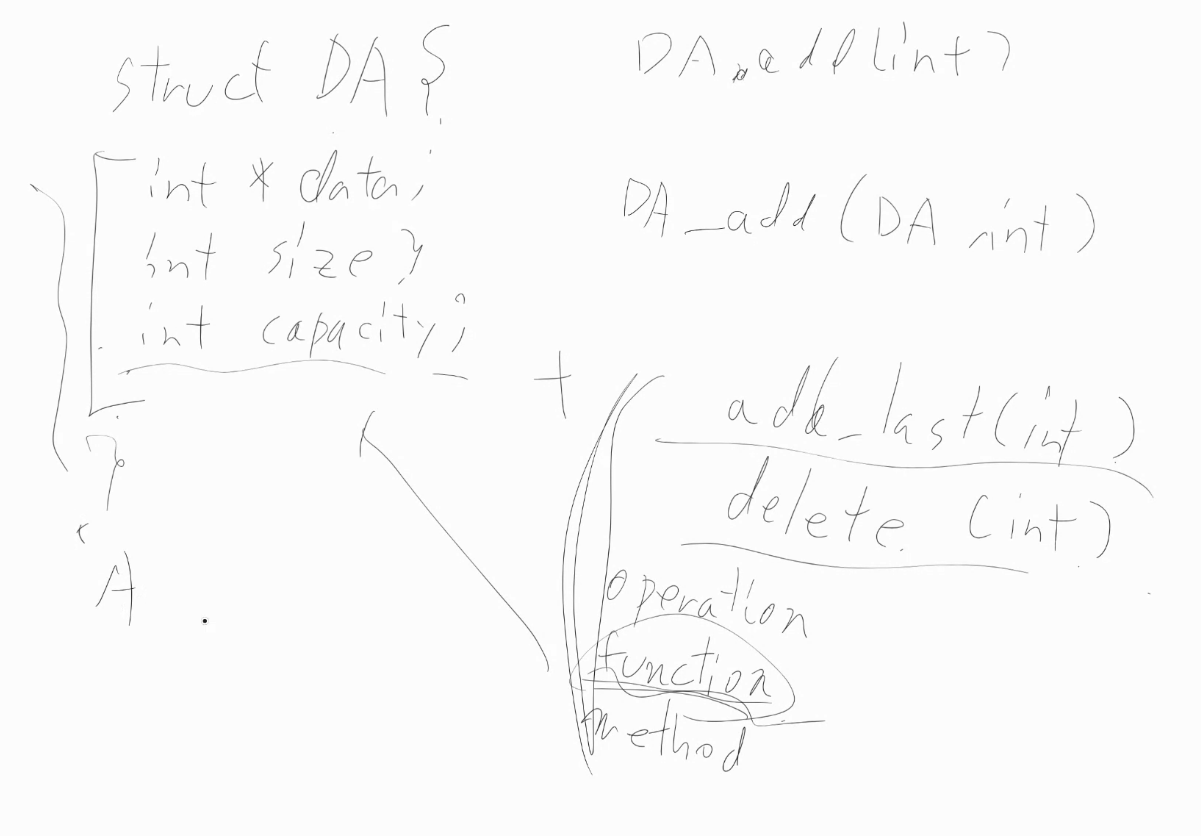 struct DA {
int * data;
int size;
int capacity;
}
A
DA.add(int)
DA_add(DA int)
+
add_last(int)
delete (int)
operation
function
method